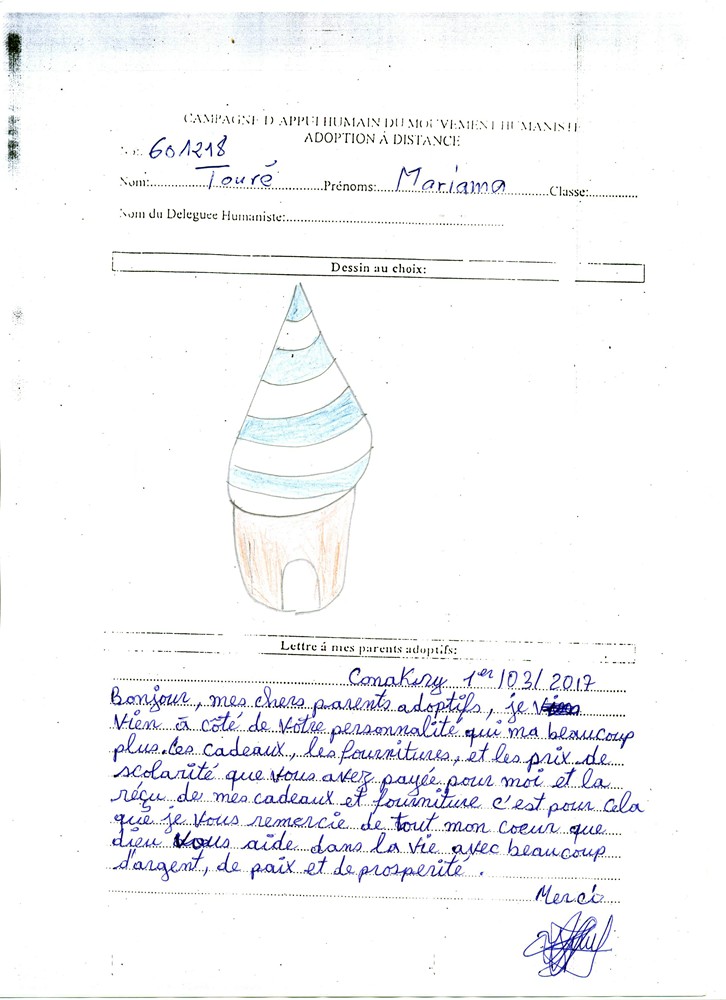 CAMPAGNE D'APPUI HUMAIN DU MOUVEMENT HUMANISTE
ADOPTION À DISTANCE
601218
Nom: Touré Prénoms: Mariama Classe:
Nom du Deleguee Humaniste:
Dessin au choix:
Lettre á mes parents adoptifs:
Conakry 1er/03/2017
Bonjour, mes chers parents adoptifs, je
vien à côté de votre personnalité qui ma beaucoup
plus. les cadeaux, les fournitures, et les prix de
scolarité que vous avez payée pour moi et la
réçu de mes cadeaux et fourniture c'est pour cela
que je vous remercie de tout mon coeur que
dieu vous aide dans la vie avec beaucoup
d'argent, de paix et de prosperité.
Merci